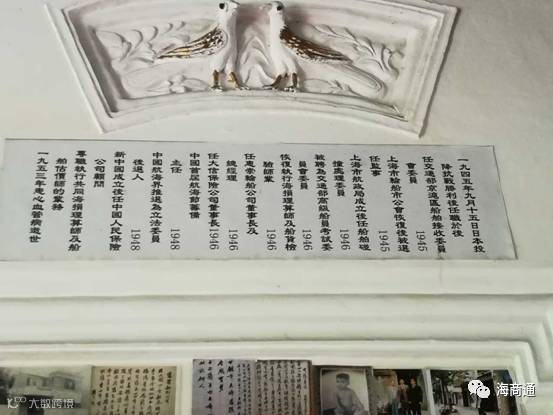 一九四五年九月十五日日本投
降抗戰勝利後任職於後
任交通部京滬區船舶接收委員
會委員 1945
上海市輪船市公會恢復後被選
任監事 1945
上海市航政局成立後任船舶碰
撞處理委員 1946
被聘為交通部高級船員考試委
員會委員 1946
恢復執行海損理算師及船貨檢
驗師業 1946
任惠眾輪船公司董事長及
總經理 1946
任大信保險公司董事長 1946
中國首屆航海節籌備
主任 1948
中國航海界推選為立法委員
後選人 1948
新中國成立後任中國人民保險
公司顧問
專職執行共同海損理算師及船
舶估價師的業務
一九五三年患心血管病逝世
大數跨境
海商通